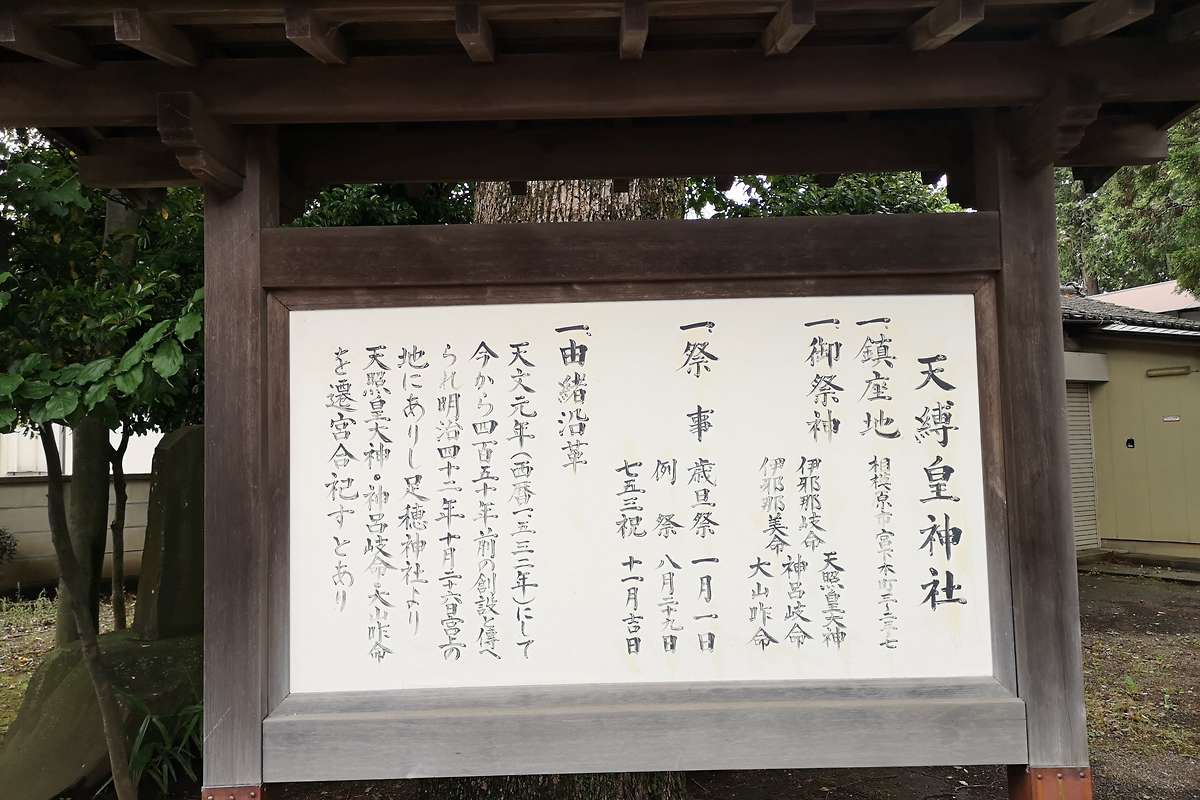 天縛皇神社
一、鎮座地 相模原市宮下本町三ー二三ー七
一、御祭神 伊邪那岐命 天照皇大神
伊邪那美命 神呂岐命
大山咋命
一、祭事 歳旦祭 一月一日
例祭 八月二十九日
七五三祝 十一月吉日
一、由緒沿革
天文元年(西暦一、五三二年)にして
今から四百五十年前の創設と傳へ
られ明治四十二年十月二十六日宮上の
地にありし足穂神社より
天照皇大神・神呂岐命・大山咋命
を遷宮合祀すとあり